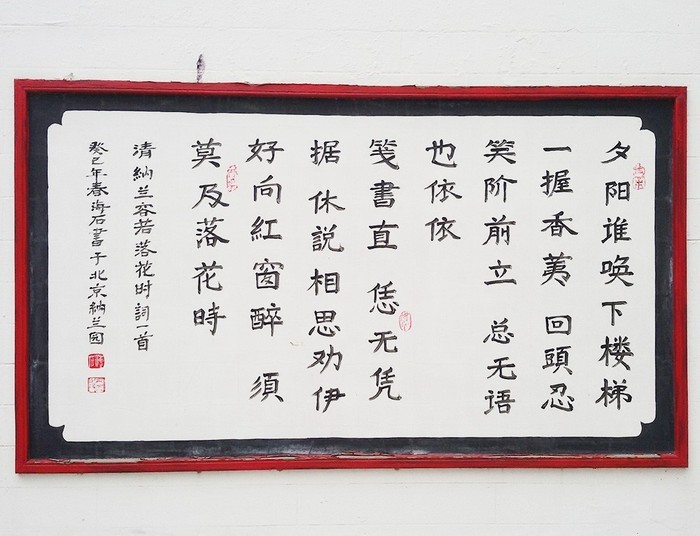 夕阳谁唤下楼梯
一握香荑 回頭忍
笑阶前立 总无语
也依依
笺書直 恁无凭
据 休説相思劝伊
好向紅窗醉 須
莫及落花時
清納兰容若落花时詞一首
癸巳年春海石書于北京納兰园